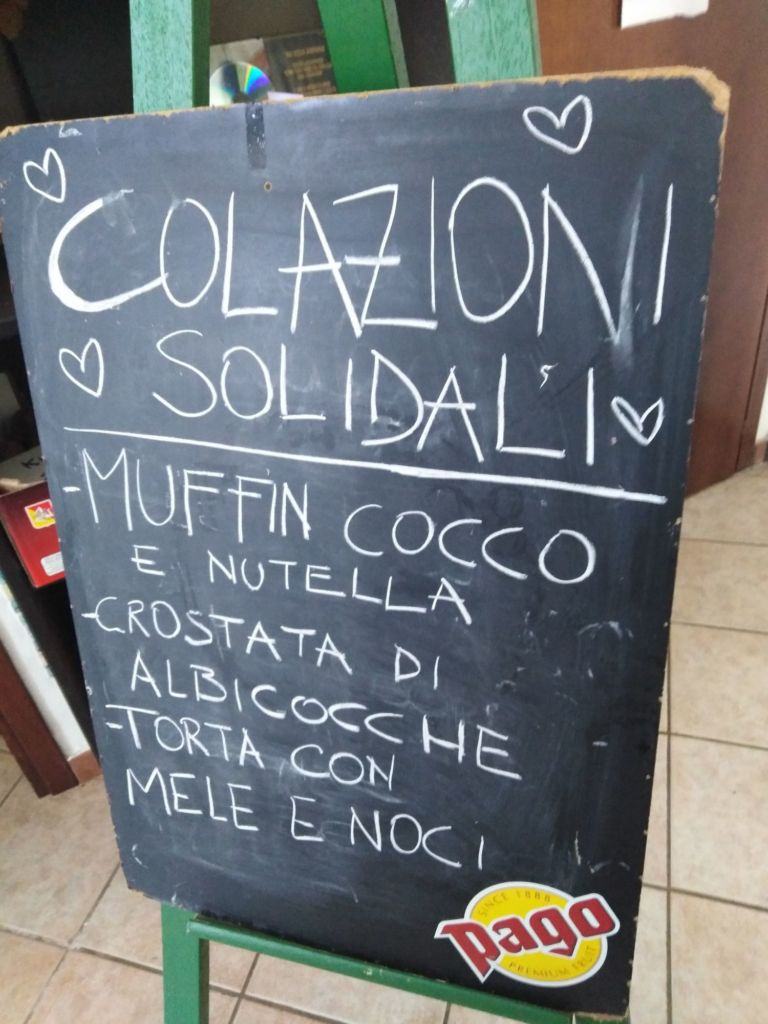 COLAZIONI
SOLIDALI
-MUFFIN COCCO
E NUTELLA
-CROSTATA DI
ALBICOCCHE
-TORTA CON
MELE E NOCI
SINCE 1888
pago
PREMIUM FRUIT